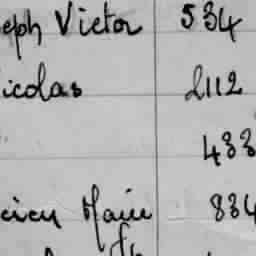 eph Victor 534
icolas 2112
433
cien Marie 834